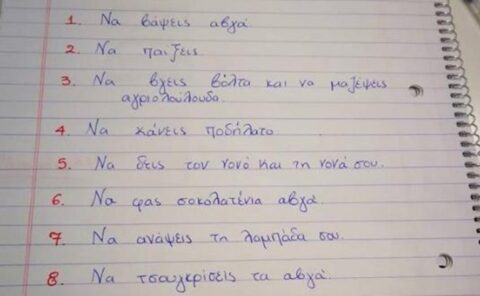 1. Να βάψεις αβγά.
2. Να παίξεις.
3. Να βγεις βόλτα και να μαζέψεις
αγριολούλουδα.
4. Να κάνεις ποδήλατο.
5. Να δεις τον νονό και τη νονά σου.
6. Να φας σοκολατένια αβγά.
7. Να ανάψεις τη λαμπάδα σου.
8. Να τσουγκρίσεις τα αβγά.